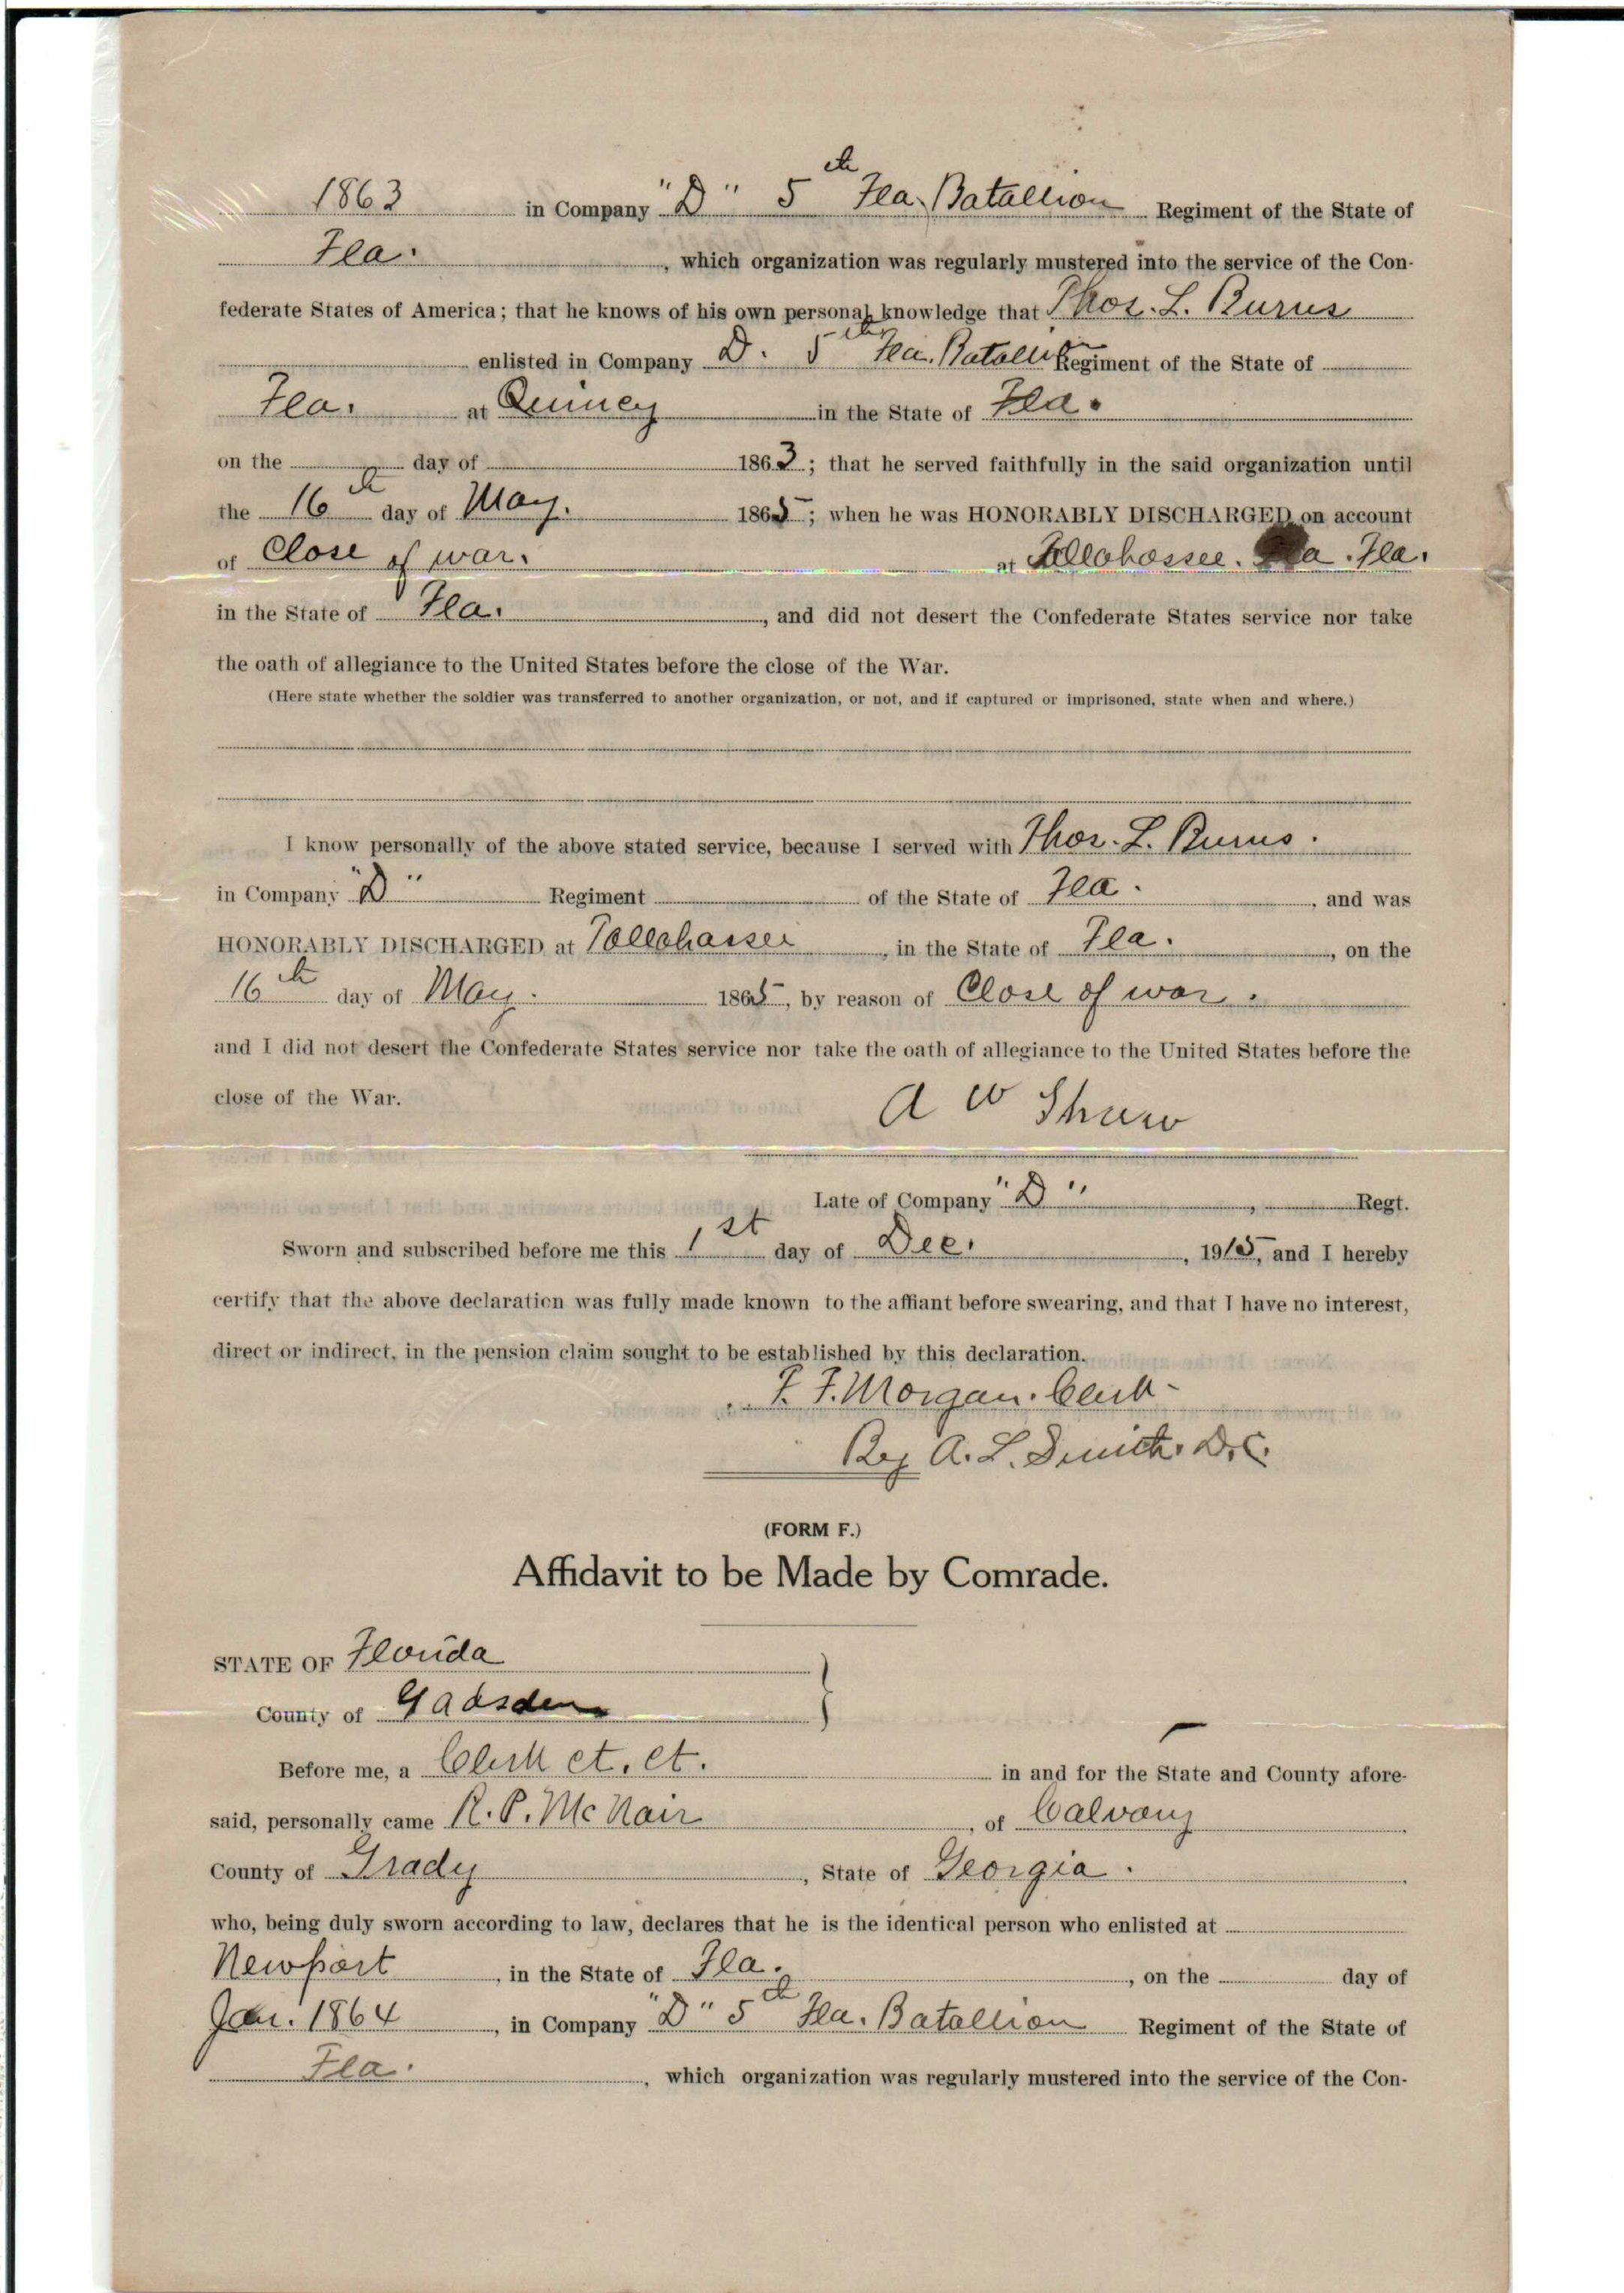 1863 in Company "D" 5th Fla. Batallion Regiment of the State of
Fla. , which organization was regularly mustered into the service of the Con-
federate States of America; that he knows of his own personal knowledge that Thos. L. Burns
enlisted in Company D. 5th Fla. Batallion Regiment of the State of
Fla. at Quincy in the State of Fla.
on the day of 1863; that he served faithfully in the said organization until
the 16th day of May. 1865; when he was HONORABLY DISCHARGED on account
of Close of war. at Tallahassee. Fla.
in the State of Fla. , and did not desert the Confederate States service nor take
the oath of allegiance to the United States before the close of the War.
(Here state whether the soldier was transferred to another organization, or not, and if captured or imprisoned, state when and where.)
I know personally of the above stated service, because I served with Thos. L. Burns.
in Company "D" Regiment of the State of Fla. , and was
HONORABLY DISCHARGED at Tallahassee , in the State of Fla. , on the
16th day of May. 1865, by reason of Close of war.
and I did not desert the Confederate States service nor take the oath of allegiance to the United States before the
close of the War.
A W Shaw
Late of Company "D" , Regt.
Sworn and subscribed before me this 1st day of Dec. , 1915, and I hereby
certify that the above declaration was fully made known to the affiant before swearing, and that I have no interest,
direct or indirect, in the pension claim sought to be established by this declaration.
F. F. Morgan. Clerk-
By A. L. Smith. D.C.
(FORM F.)
Affidavit to be Made by Comrade.
STATE OF Florida
County of Gadsden
Before me, a Clerk ct. ct. in and for the State and County afore-
said, personally came R. P. McNair , of Calvary
County of Grady , State of Georgia.
who, being duly sworn according to law, declares that he is the identical person who enlisted at
Newport , in the State of Fla. , on the day of
Jan. 1864 , in Company "D" 5th Fla. Batallion Regiment of the State of
Fla. , which organization was regularly mustered into the service of the Con-